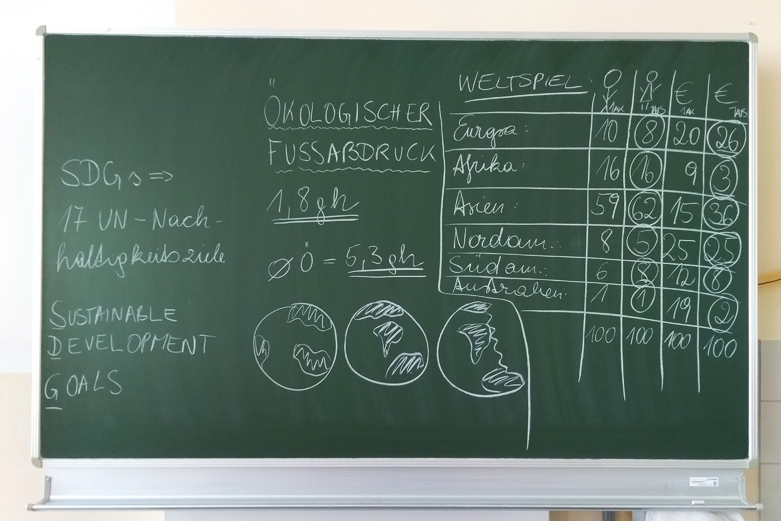 SDGs ⇒
17 UN-Nach-
haltigkeitsziele
SUSTAINABLE
DEVELOPMENT
GOALS
ÖKOLOGISCHER
FUSSABDRUCK
1,8 gh
Ø Ö = 5,3 gh
WELTSPIEL: € €
Europa: 10 8 20 26
Afrika: 16 16 9 3
Asien: 59 62 15 36
Nordam.: 8 5 25 25
Südam.: 6 8 12 8
Australien: 1 1 19 2
100 100 100 100